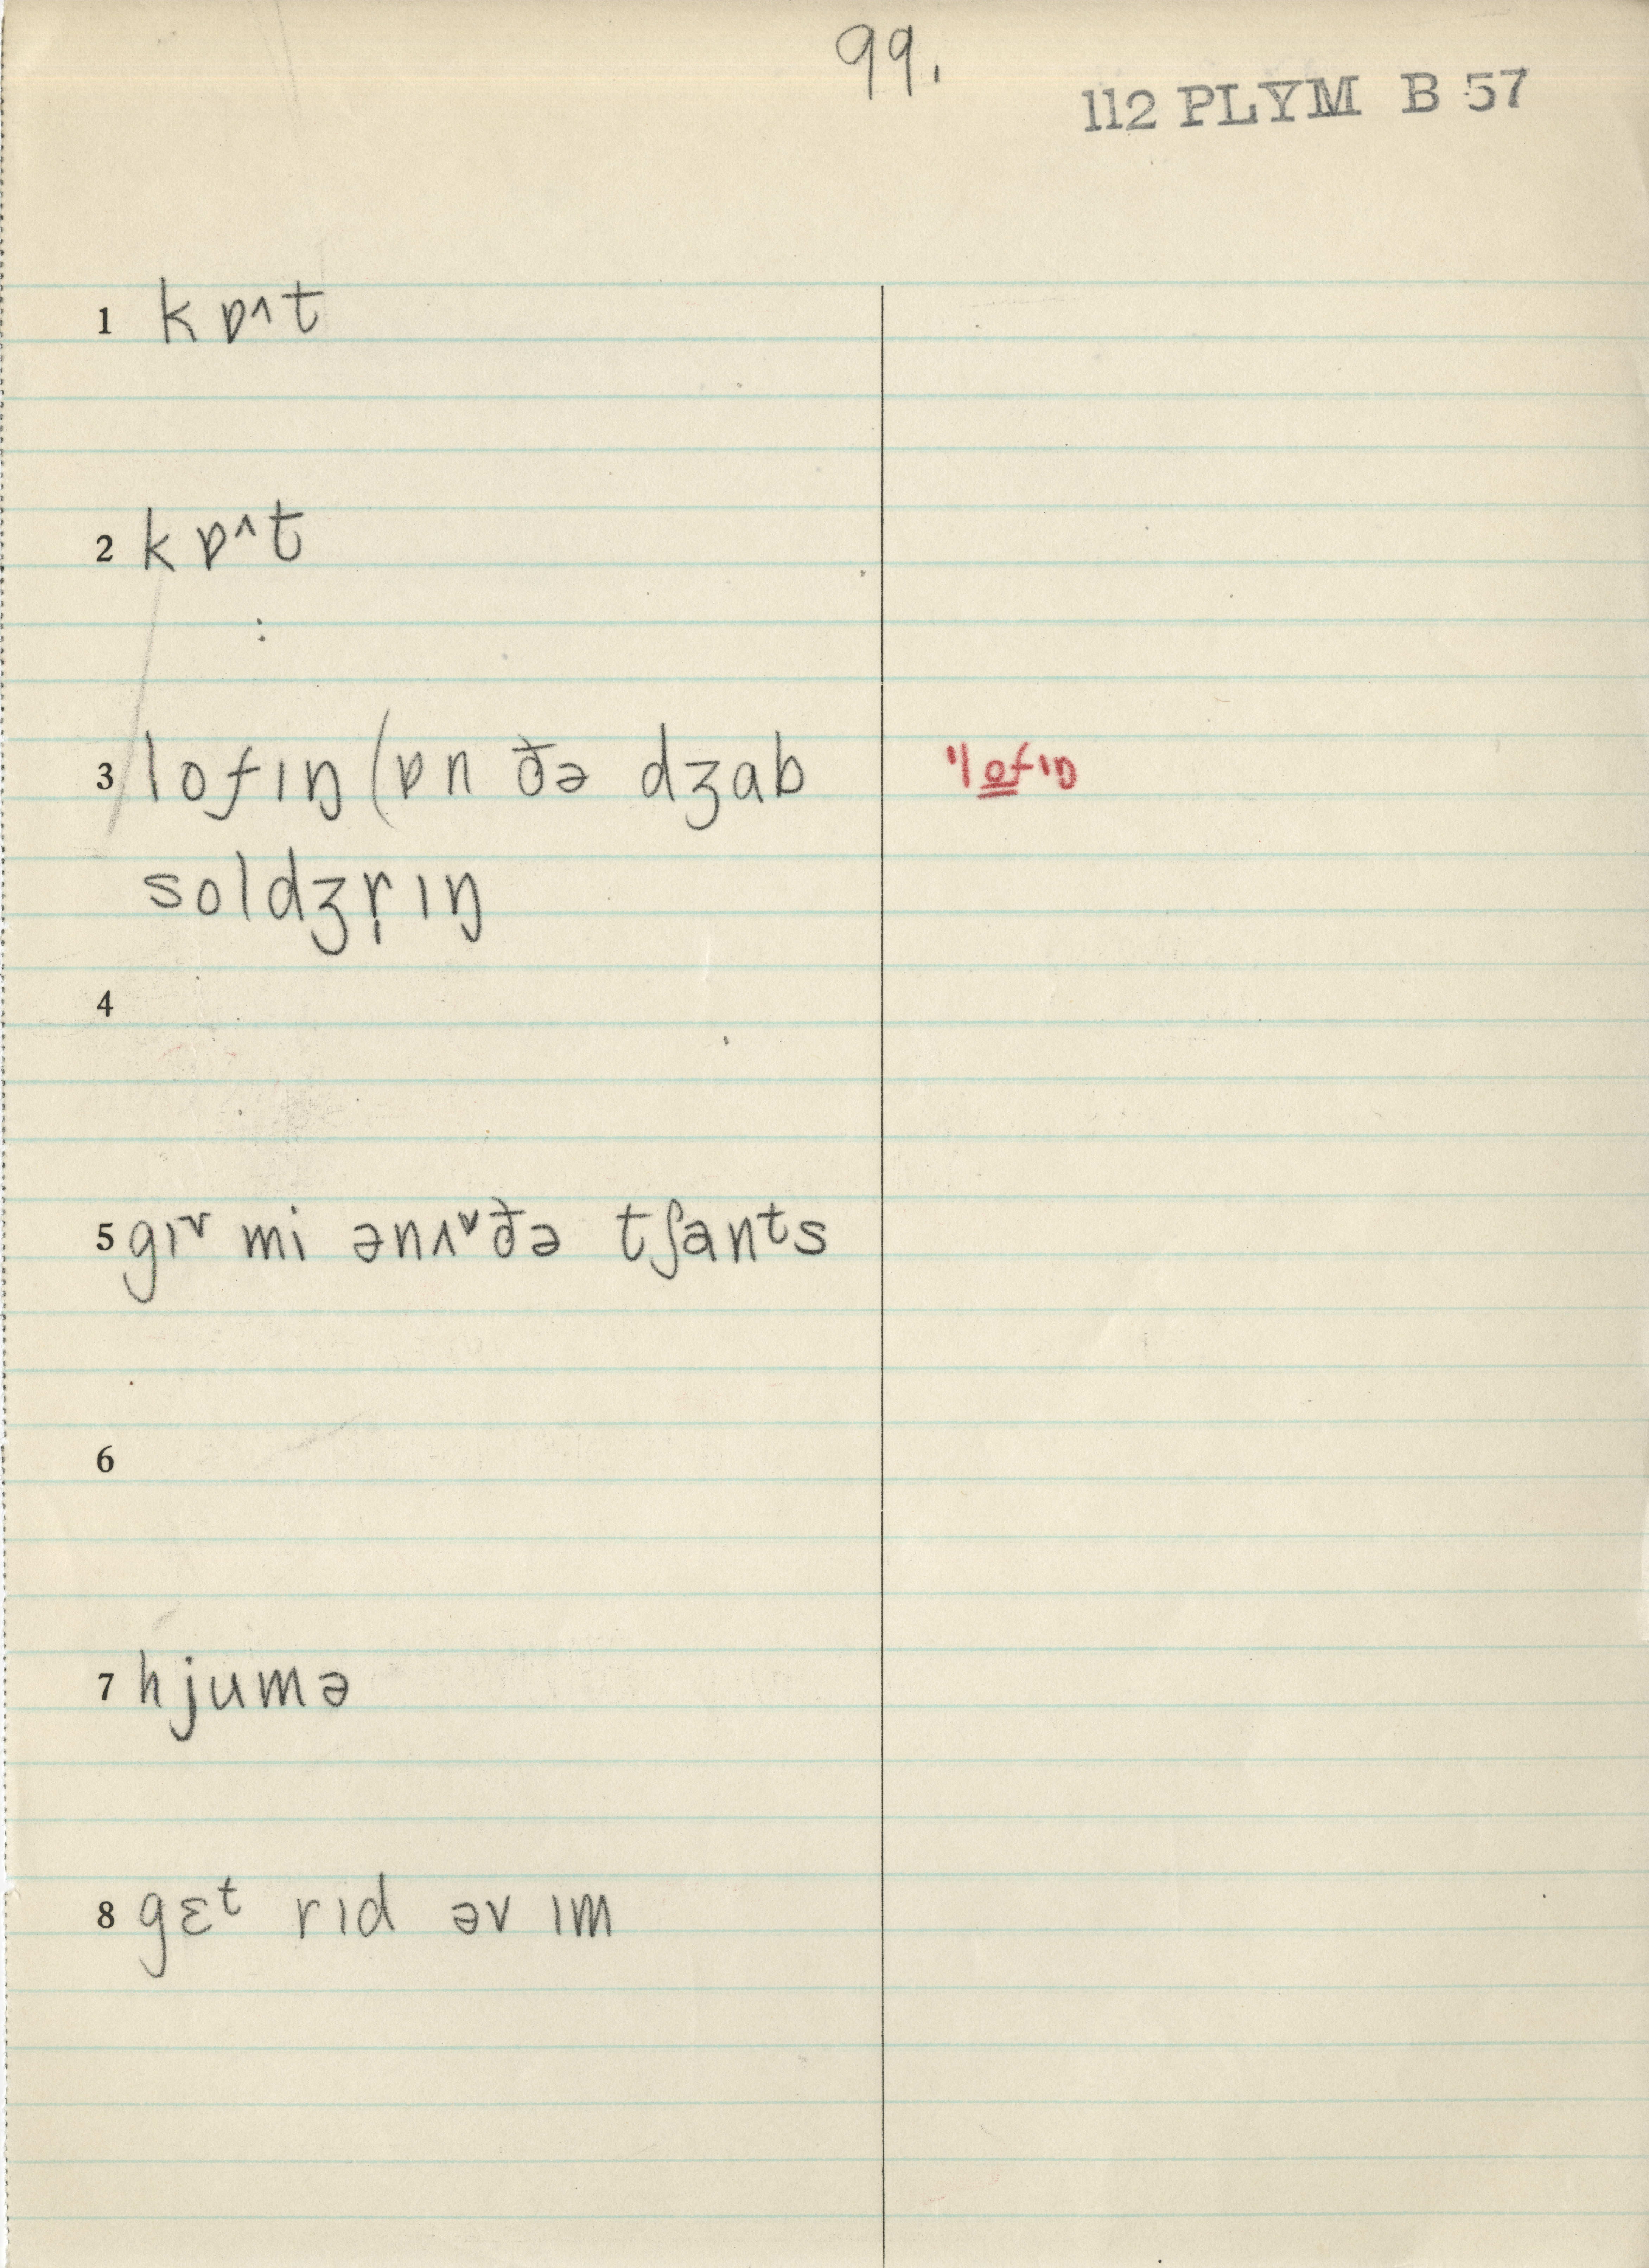 99.
112 PLYM B 57
1 kɒ^t
2 kɒ^t
3 lofɪŋ (ɒn ðə dʒab
ˈlo̳fɪŋ
soldʒr̩ɪŋ
4
5 gɪᵛ mi ənʌᵛðə tʃanᵗs
6
7 hjumə
8 gɛᵗ rɪd əv ɪm